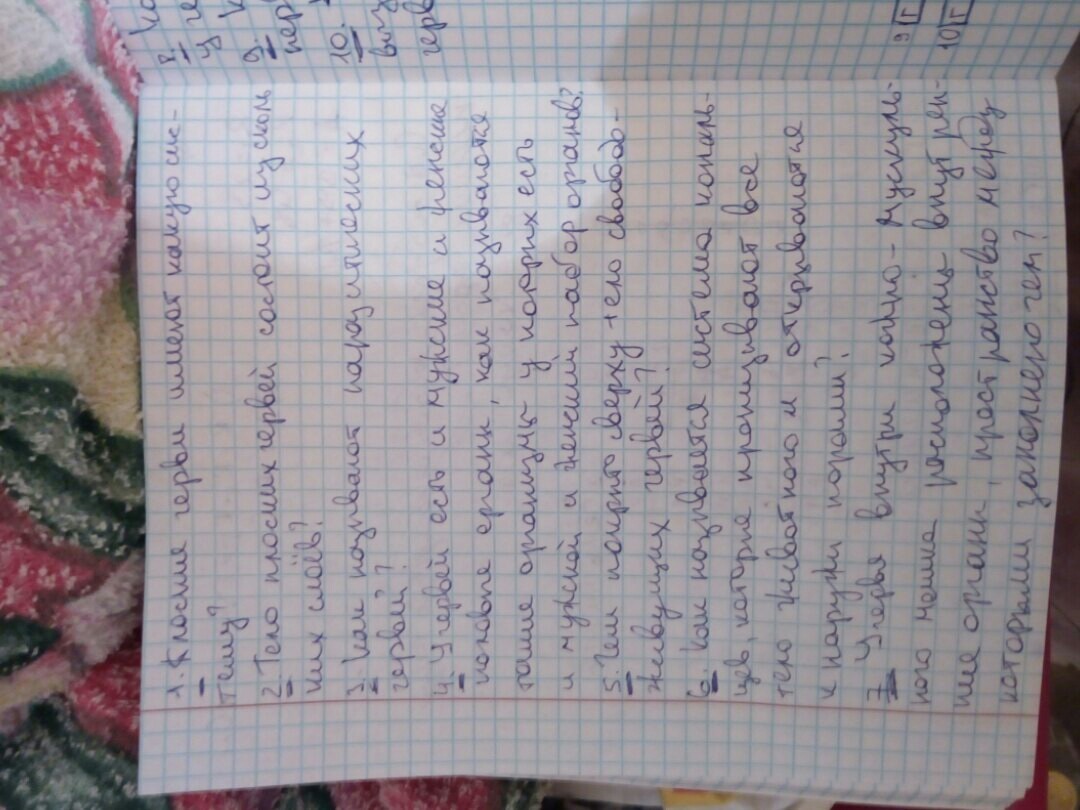 1. Плоские черви имеют какую сис-
тему?
2. Тело плоских червей состоит из сколь
ких слоёв?
3. Как называют паразитических
червей?
4. У червей есть и мужские и женские
половые органы, как называются
такие организмы у которих есть
и мужской и женский набор органов?
5. Чем покрыто сверху тело свободо-
живущих червей?
6. Как называется система каналь-
цев, которые пронизывают все
тело животного и открываются
к наружи порами?
7 У червя внутри кожно-мускуль-
ного мешка расположены внутрен-
ние органы, пространство между
которыми заполнено чем?
8. 
9. 
10. 
9 Г
10 Г